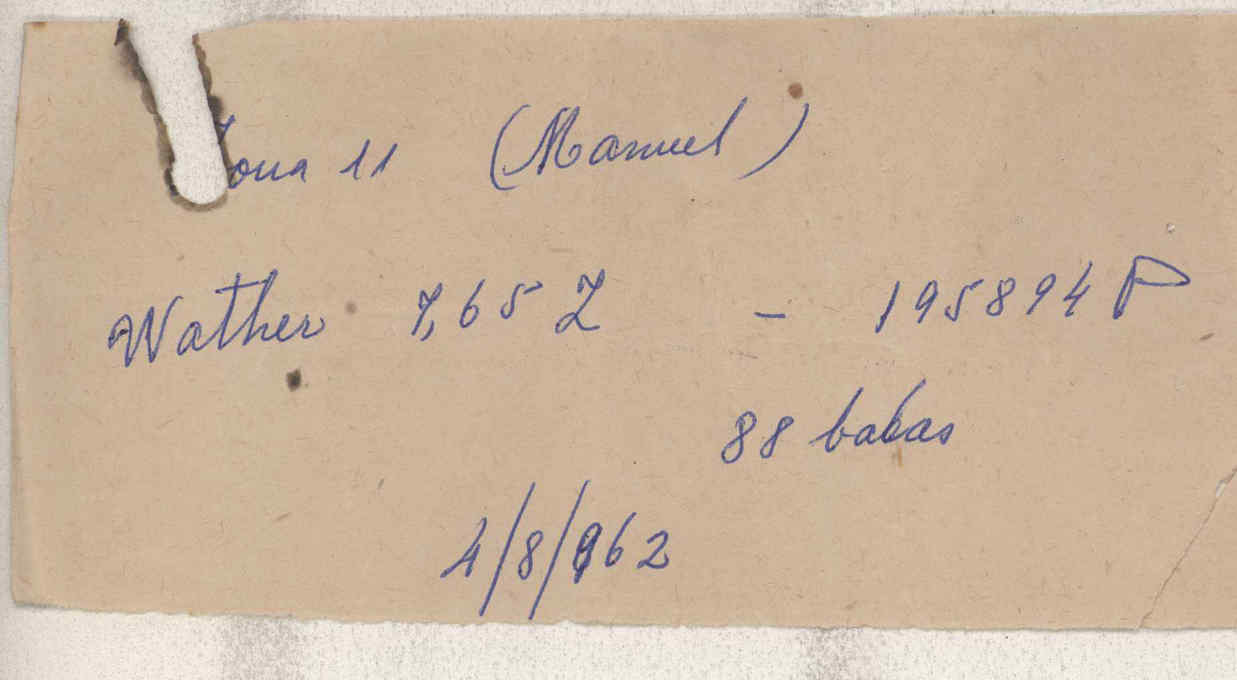 Zona 11 (Manuel)
Wather 7,65 Z - 195894 P
88 balas
4/8/962